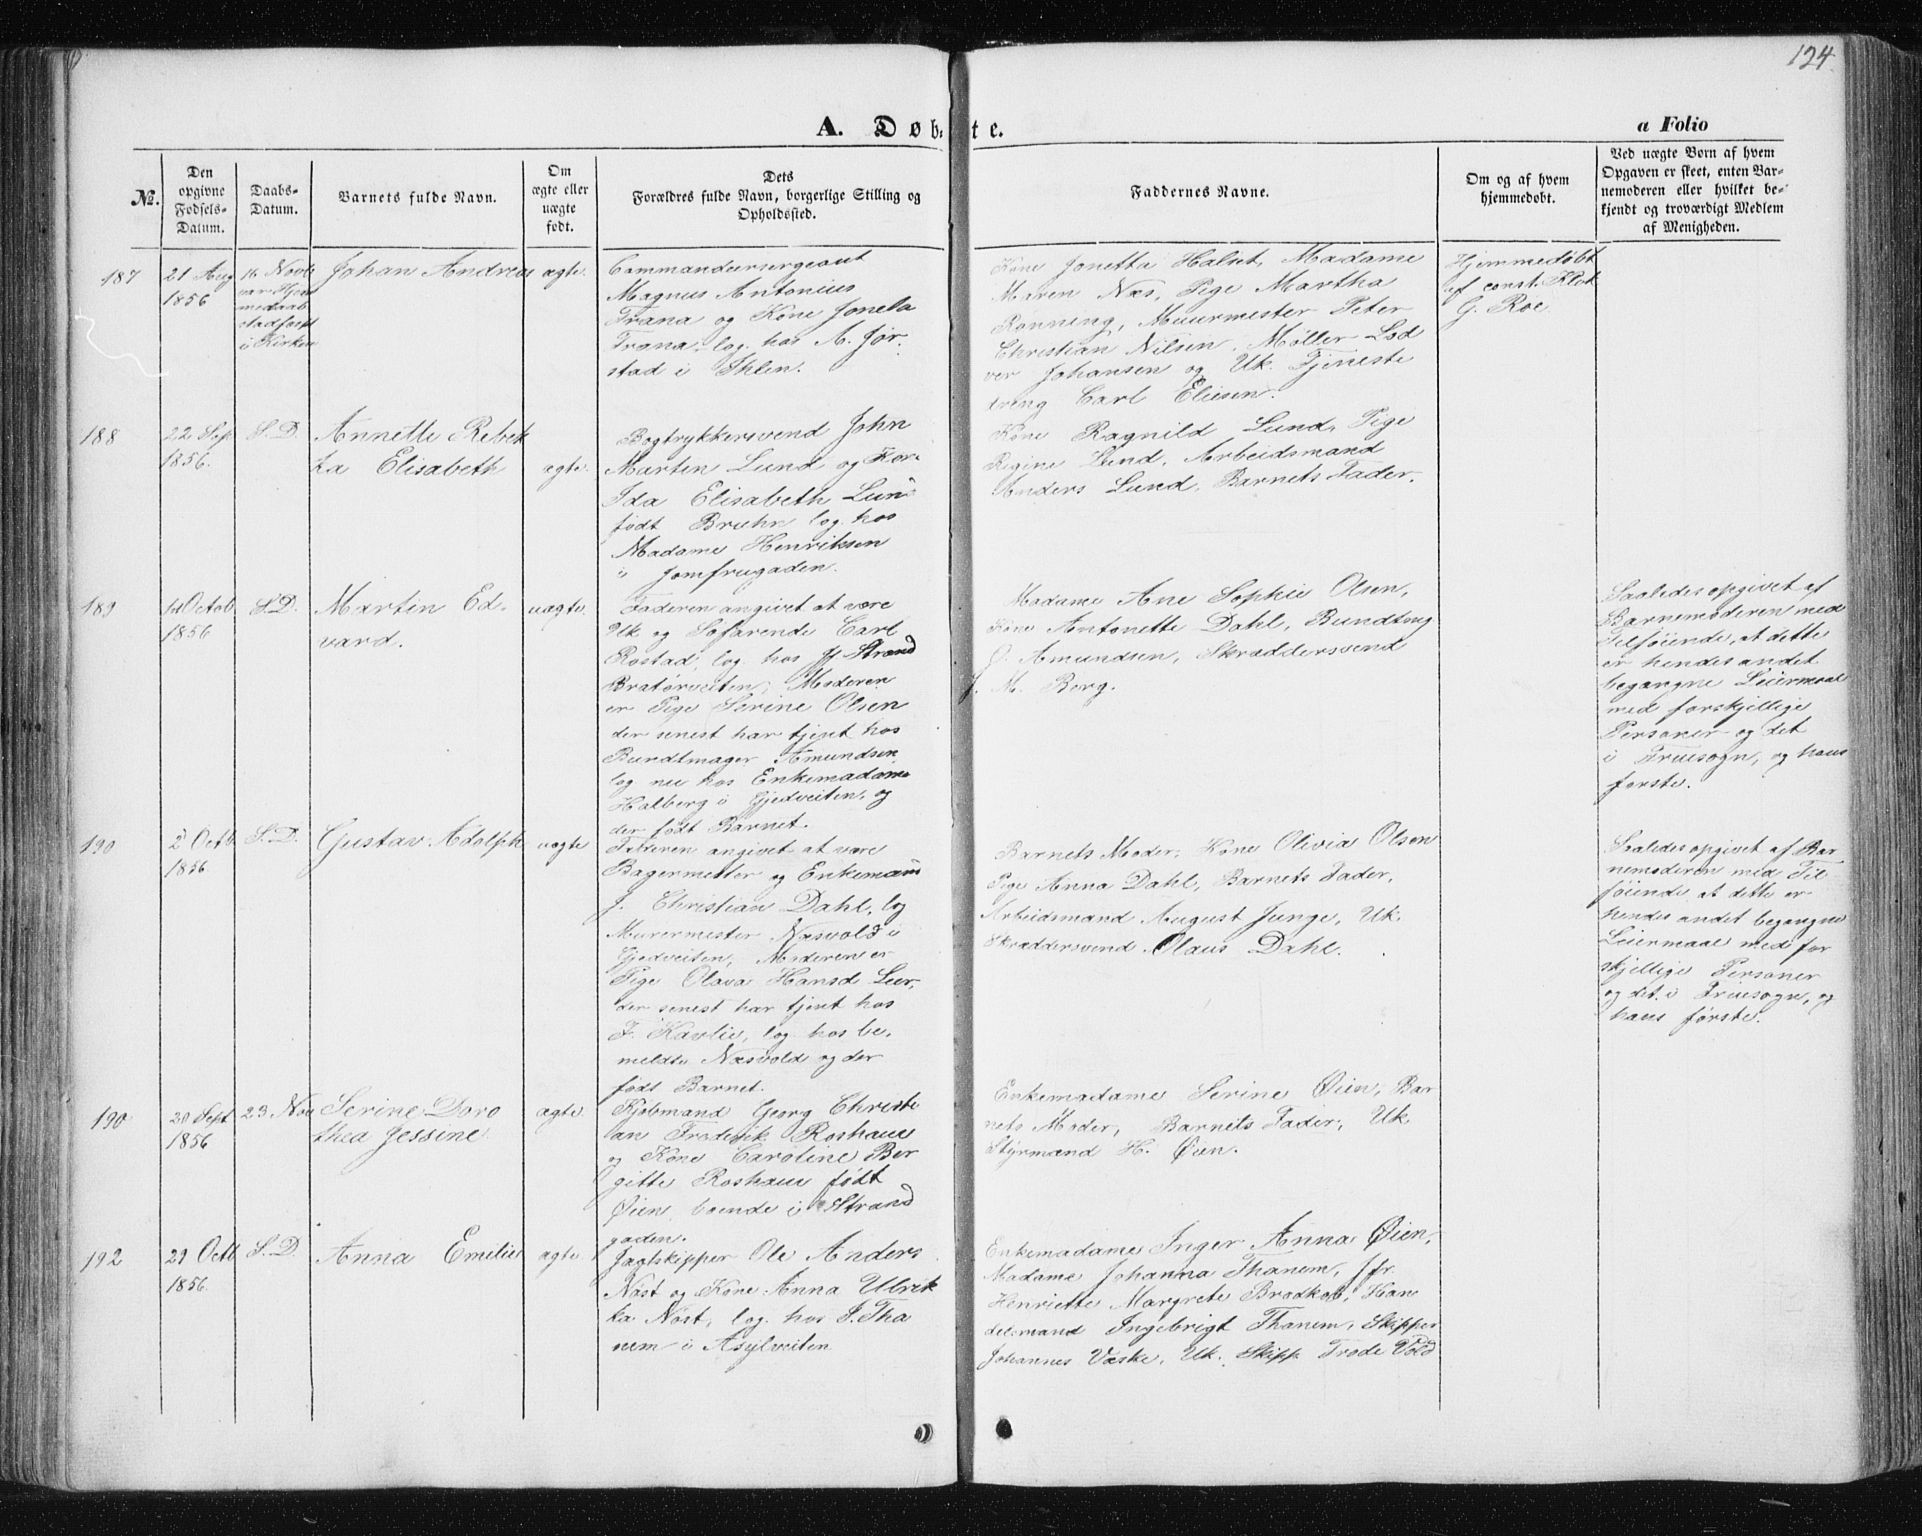 124
A. Døbte.
a Folio
No.
Den
opgivne
Fødsels-
Datum.
Daabs-
Datum.
Barnets fulde Navn.
Om
ægte eller
uægte
født.
Dets
Forældres fulde Navn, borgerlige Stilling og
Opholdssted.
Faddernes Navne.
Om og af hvem
hjemmedøbt.
Ved uægte Børn af hvem
Opgaven er skeet, enten Bar-
nemoderen eller hvilket be-
kjendt og troværdigt Medlem
af Menigheden.
187
21 Aug
1856
16 Novb
var Hjem
medaab
stadfæst
i Kirken
Johan Andreas
ægte.
Commandeersergeant
Magnus Antonius
Trana og Kone Joneta
Trana, log. hos A. Jør-
stad i Ihlen.
Kone Jonetta Halset, Madame
Maren Næs, Pige Martha
Rønning, Muurmester Peter
Christian Nilsen, Møller Lod
ver Johansen og Uk. Tjeneste
dreng Carl Eliesen.
Hjemmedøbt
af const. Klok
G. Roe
188
22 Sep
1856.
S.D.
Annette Rebek
ka Elisabeth
ægte.
Bogtrykkersvend John
Martin Lund og Kone
Ida Elisabeth Lund
født Bruhn log. hos
Madame Henriksen
i Jomfrugaden.
Kone Ragnild Lund, Pige
Regine Lund, Arbeidsmand
Anders Lund, Barnets Fader.
189
14 Octob
1856
S.D.
Martin Ed-
vard.
uægte.
Faderen angivet at være
Uk og Søfarende Carl
Rostad, log. hos Strand
Bratørveiten, Moderen
er Pige Serine Olsen
der senest har tjent hos
Bundtmager Amundsen
log nu hos Enkemadame
Halberg i Gjedveiten, og
der født Barnet.
Madame Ane Sophie Olsen,
Kone Antonette Dahl, Bundtmg
O. Amundsen, Skræddersvend
J. M. Berg.
Saaledes opgivet af
Barnemoderen med
Tilføiende, at dette
er hendes andet
begangne Leiermaal
med forskjellige
Personer og det
i Fruesogn, og hans
første.
190
2 Octb.
1856
S.D.
Gustav Adolph
uægte
Faderen angivet at være
Bagermester og Enkemand
J. Christian Dahl, log
Murermester Næsvold i
Gjedveiten, Moderen er
Pige Olava Hansd. Leer,
der senest har tjent hos
F. Kavlie, log hos be-
meldte Næsvold og der
født Barnet.
Barnets Moder, Kone Olivia Olsen
Pige Anna Dahl, Barnets Fader,
Arbeidsmand August Junge, Uk.
Skræddersvend Olaus Dahl.
Saaledes opgivet af Bar
nemoderen med Til
føiende, at dette er
hendes andet begangne
Leiermaal med for
skjellige Personer
og det i Fruesogn, og
hans første.
190
20 Sept
1856
23 Nov
Serine Doro
thea Jessine
ægte.
Kjøbmand Georg Christi
an Frederik Roshauw
og Kone Caroline Ber
gitte Roshauw født
Øien, boende i Strand
gaden.
Enkemadame Serine Øien, Bar
nets Moder, Barnets Fader, Uk
Styrmand H. Øien.
192
29 Octb
1856.
S.D.
Anna Emilie
ægte
Jagtskipper Ole Anders
Nøst og Kone Anna Ulrik
ka Nøst, log. hos J. Tha
nem i Asylveiten
Enkemadame Inger Anna Øien,
Madame Johanna Thanem, Jfr.
Henriette Margrete Brodkob, Han
delsmand Ingebrigt Thanem, Skipper
Johannes Væske, Uk. Skipp Frode Vold